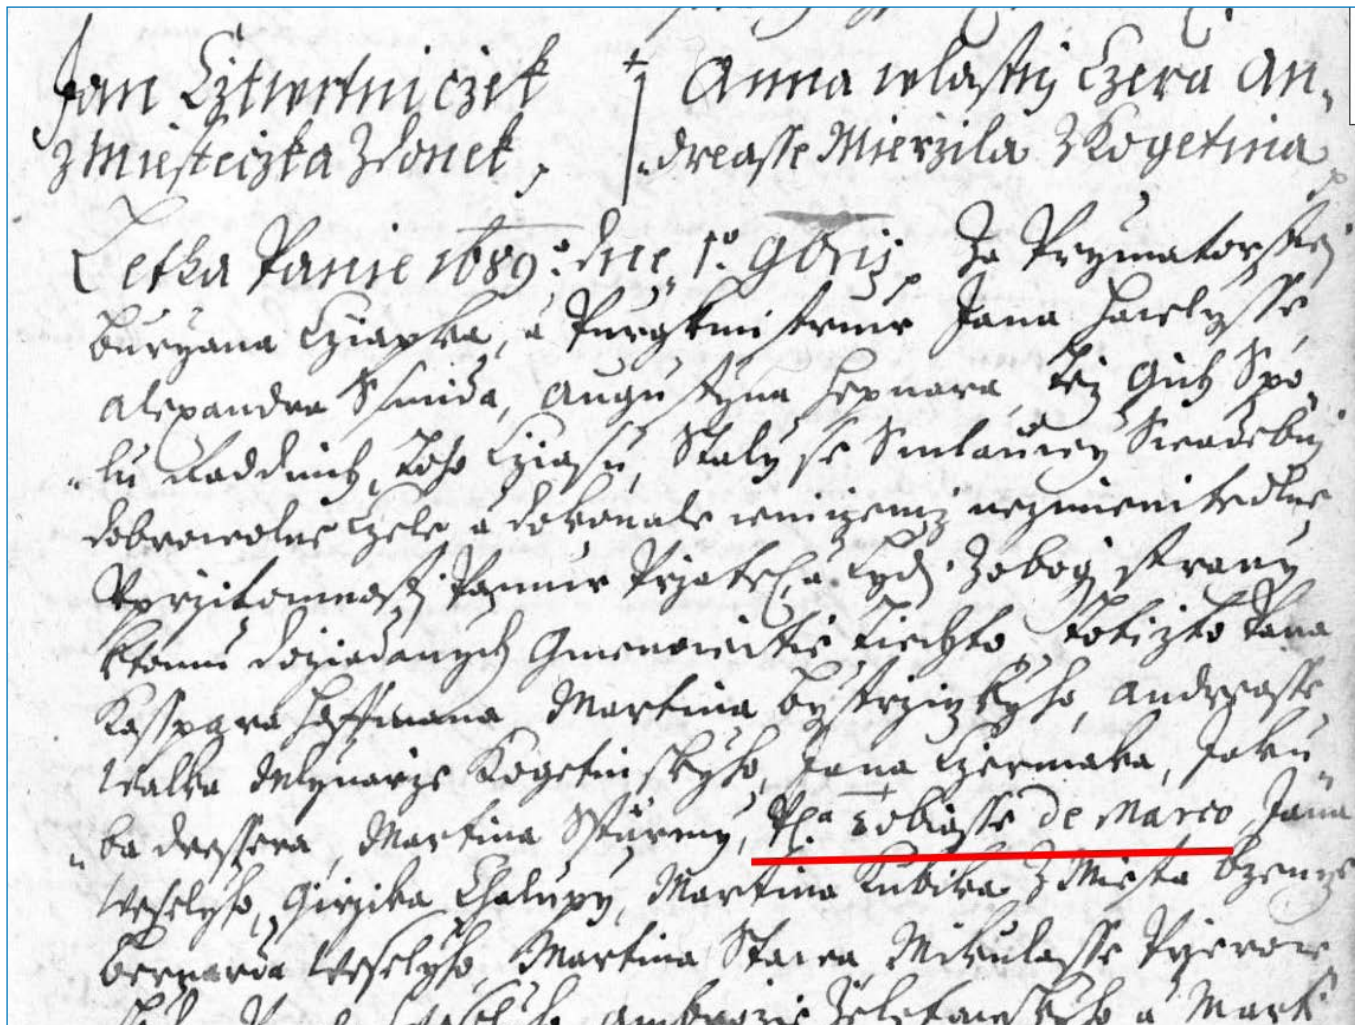 Jan Cžtwrtnicžek
z Miesteczka Zdonek,
Anna wlastnj Czera An,
dreasse Mierzila z Kogetina
Letha Panie 1689: dne 1º 9bris Za Prymatorstwj
Buryana Cžiapka, a Purgkmistruw Jana
Alexandra Ssmida, Augustyna Hepnara, tež Gich Spo
lu Raddnich, toho Cžiasu, Staly se Smlauwy Swadebnj
dobrowolne Czele a dokonale
Vpržitomnosti Panuw Pržatel a Lydj Zobogj strany
ktomu dožiadanych Gmenowitie Tiechto Totižto Pana
Kasspara Hoffmana Martina Bystržiczkyho, Andreasse
Walka Mlynarže Kogetinskyho, Jana Cžermaka, Jaku
ba Dressera, Martina Sturmy, Pa Tobiasse de Marco Jana
Weselyho, Giržika Chalupy, Martina Kubika z Miesta Bzence
Bernarda Weselyho, Martina Mikulasse
Ambrože a Mart